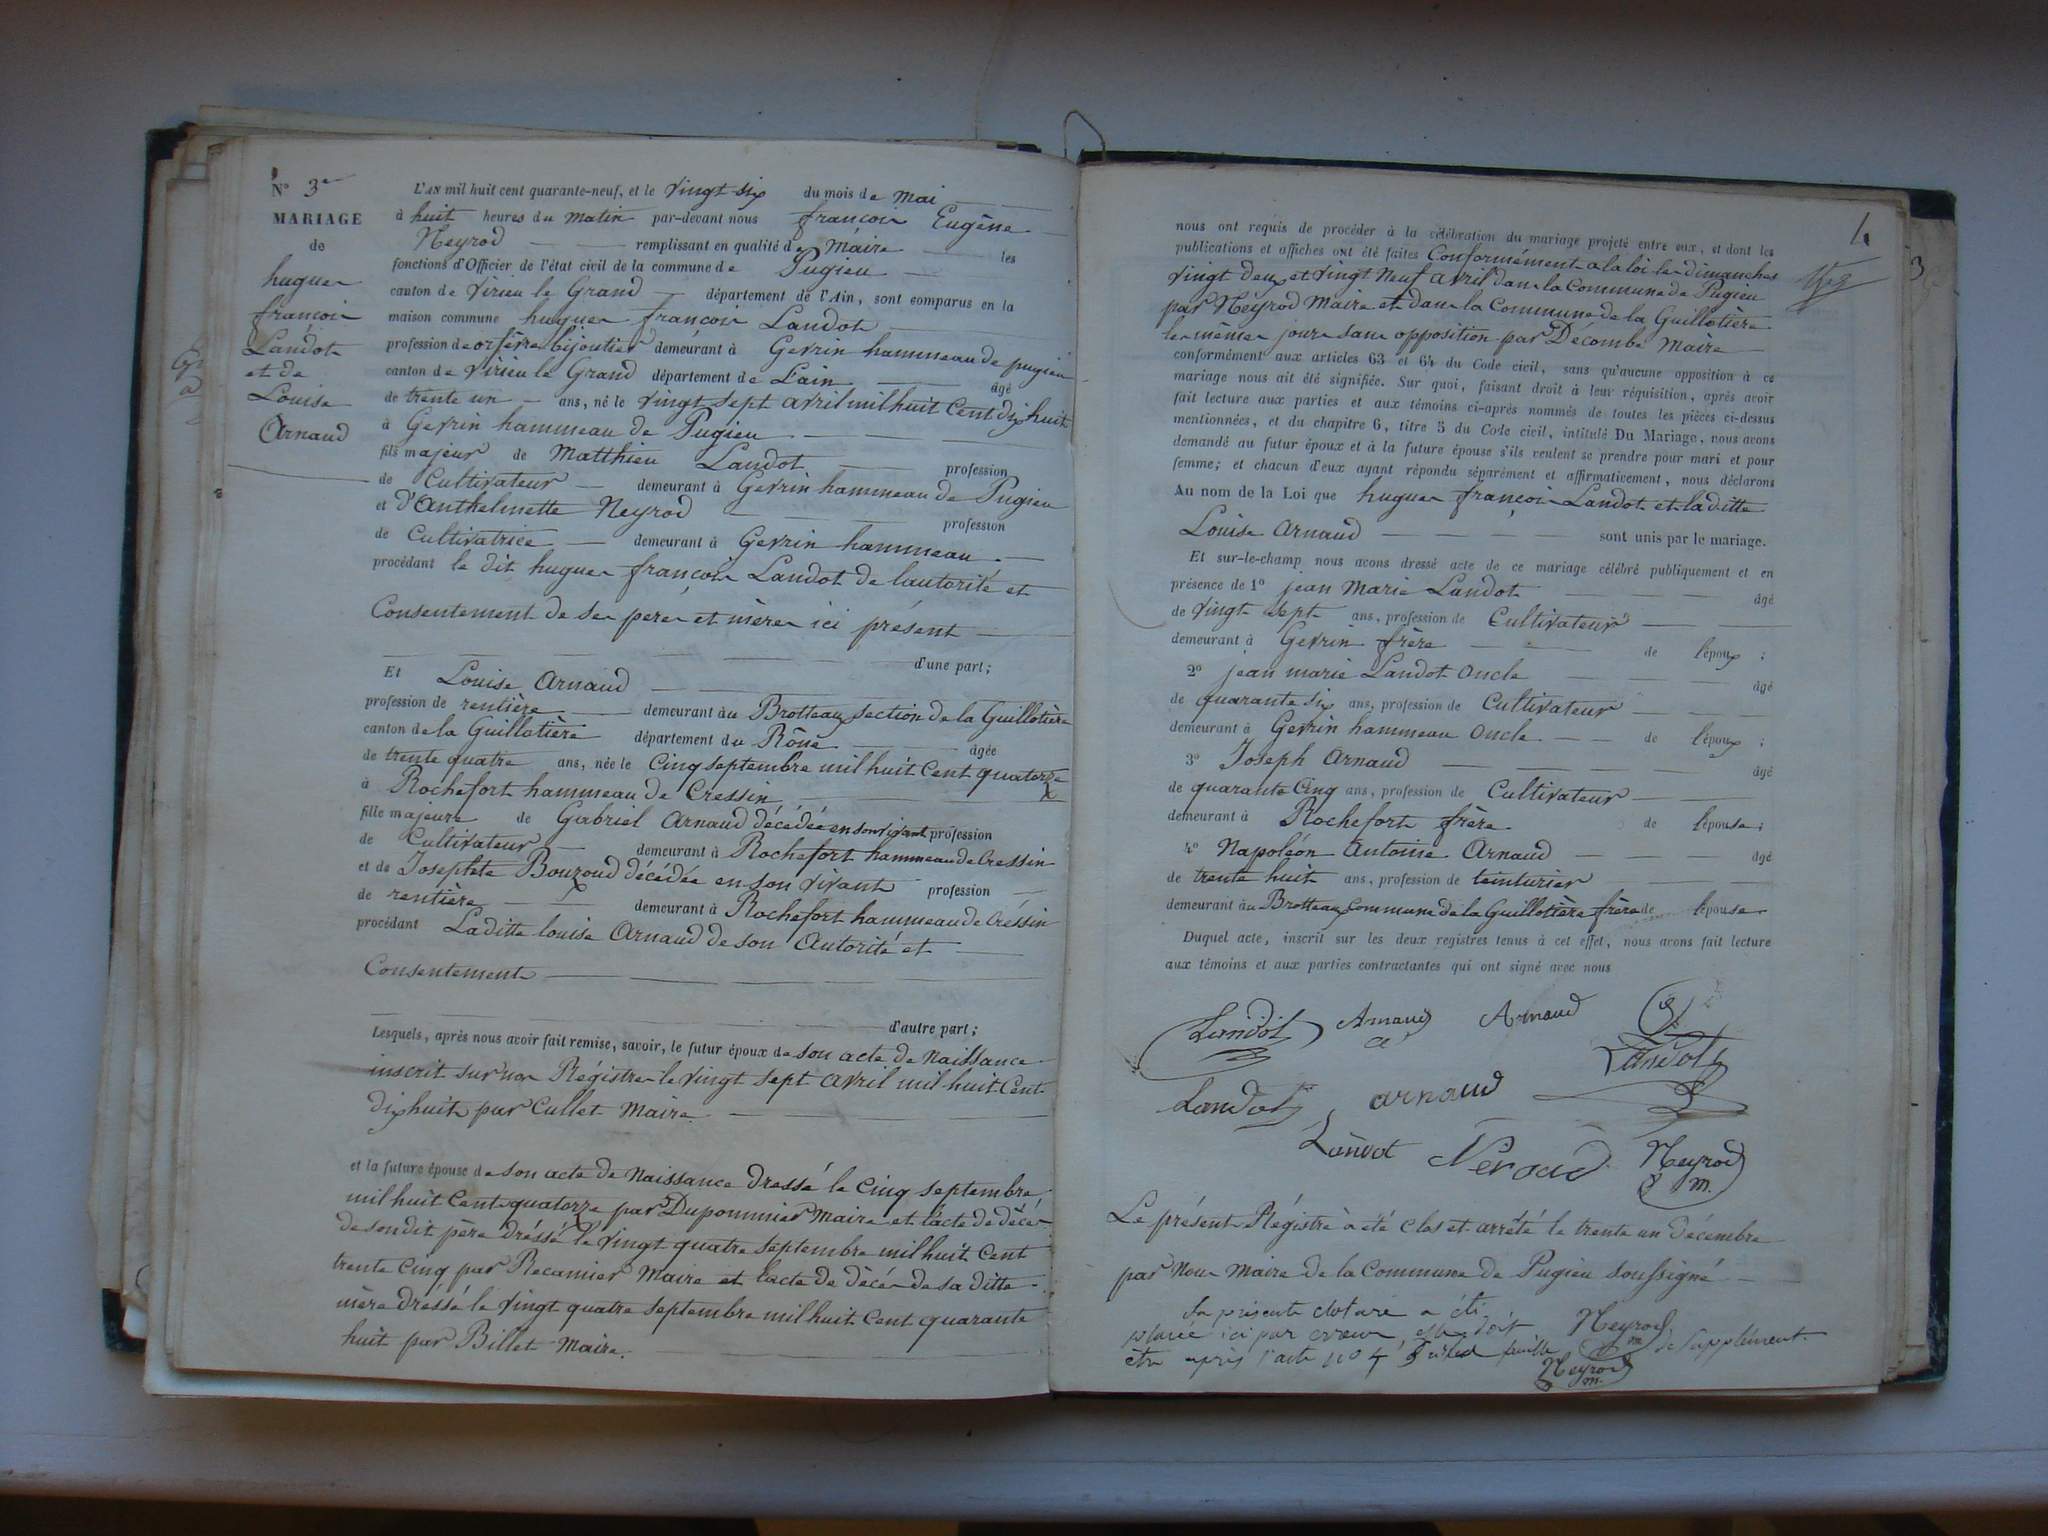 N° 3e
MARIAGE
de
hugues
françois
Landot
et de
Louise
Arnaud
L'AN mil huit cent quarante-neuf, et le vingt six du mois de Mai
à huit heures du matin par-devant nous françois Eugène
Neyrod remplissant en qualité de Maire les
fonctions d'Officier de l'état civil de la commune de Pugieu
canton de Virieu le Grand département de l'Ain, sont comparus en la
maison commune hugues françois Landot
profession de orfèvre bijoutier demeurant à Gevrin hammeau de pugieu
canton de Virieu le Grand département de Lain âgé
de trente un ans, né le vingt sept avril mil huit Cent dix huit
à Gevrin hammeau de Pugieu
fils majeur de Matthieu Landot profession
de Cultivateur demeurant à Gevrin hammeau de Pugieu
et d'Anthelmette Neyrod profession
de Cultivatrice demeurant à Gevrin hammeau
procédant le dit hugues françois Landot de lautorité et
Consentement de ses père et mère ici présent
d'une part;
Et Louise Arnaud
profession de rentière demeurant àu Brotteaux section de la Guillotière
canton de la Guillotière département du Rône âgée
de trente quatre ans, née le Cinq septembre mil huit Cent quatorze
à Rochefort hammeau de Cressin
fille majeure de Gabriel Arnaud décédée en son vivant profession
de Cultivateur demeurant à Rochefort hammeau de Cressin
et de Josephte Bouzoud décédée en son vivant profession
de rentière demeurant à Rochefort hammeau de Créssin
procédant Laditte louise Arnaud de son Autorité et
Consentement
d'autre part;
Lesquels, après nous avoir fait remise, savoir, le futur époux de son acte de Naissance
inscrit sur nos Régistres le vingt sept avril mil huit Cent
dix huit par Cullet Maire
et la future épouse de son acte de Naissance dressé le Cinq septembre
mil huit Cent quatorze par Dupommier Maire et l'acte de décés
de son dit père dréssé le vingt quatre septembre mil huit Cent
trente Cinq par Recamier Maire et l'acte de décés de sa ditte
mère dréssé le vingt quatre septembre mil huit Cent quarante
huit par Billet Maire.
nous ont requis de procéder à la célébration du mariage projeté entre eux, et dont les
publications et affiches ont été faites Conformément a la loi les dimanches
vingt deux et vingt Neuf avril dans la Commune de Pugieu
par Neyrod Maire et dans la Commune de la Guillotière
les mêmes jours sans opposition par Décombe Maire
conformément aux articles 63 et 64 du Code civil, sans qu'aucune opposition à ce
mariage nous ait été signifiée. Sur quoi, faisant droit à leur réquisition, après avoir
fait lecture aux parties et aux témoins ci-après nommés de toutes les pièces ci-dessus
mentionnées, et du chapitre 6, titre 5 du Code civil, intitulé Du Mariage, nous avons
demandé au futur époux et à la future épouse s'ils veulent se prendre pour mari et pour
femme; et chacun d'eux ayant répondu séparément et affirmativement, nous déclarons
Au nom de la Loi que hugues françois Landot et laditte
Louise Arnaud sont unis par le mariage.
Et sur-le-champ nous avons dressé acte de ce mariage célébré publiquement et en
présence de 1° jean Marie Landot âgé
de vingt sept ans, profession de Cultivateur
demeurant à Gevrin frère de lépoux ;
2° jean marie Landot Oncle âgé
de quarante six ans, profession de Cultivateur
demeurant à Gevrin hammeau Oncle de lépoux ;
3° Joseph Arnaud âgé
de quarante Cinq ans, profession de Cultivateur
demeurant à Rochefort frère de lépouse ;
4° Napoléon Antoine Arnaud âgé
de trente huit ans, profession de teinturier
demeurant àu Brotteaux Commune de la Guillotière frère de lépouse
Duquel acte, inscrit sur les deux registres tenus à cet effet, nous avons fait lecture
aux témoins et aux parties contractantes qui ont signé avec nous
Landot Arnaud Arnaud
Landot
Landot arnaud
Landot Neroud Neyrod
m.
Le présent Régistre à été Clos et arrêté le trente un décembre
par Nous Maire de la Commune de Pugieu soussigné
La présente cloture a été Neyrod
placée ici par erreur, elle doit m
être après l'acte no 4 feuille de Supplément
Neyrod
m.
3